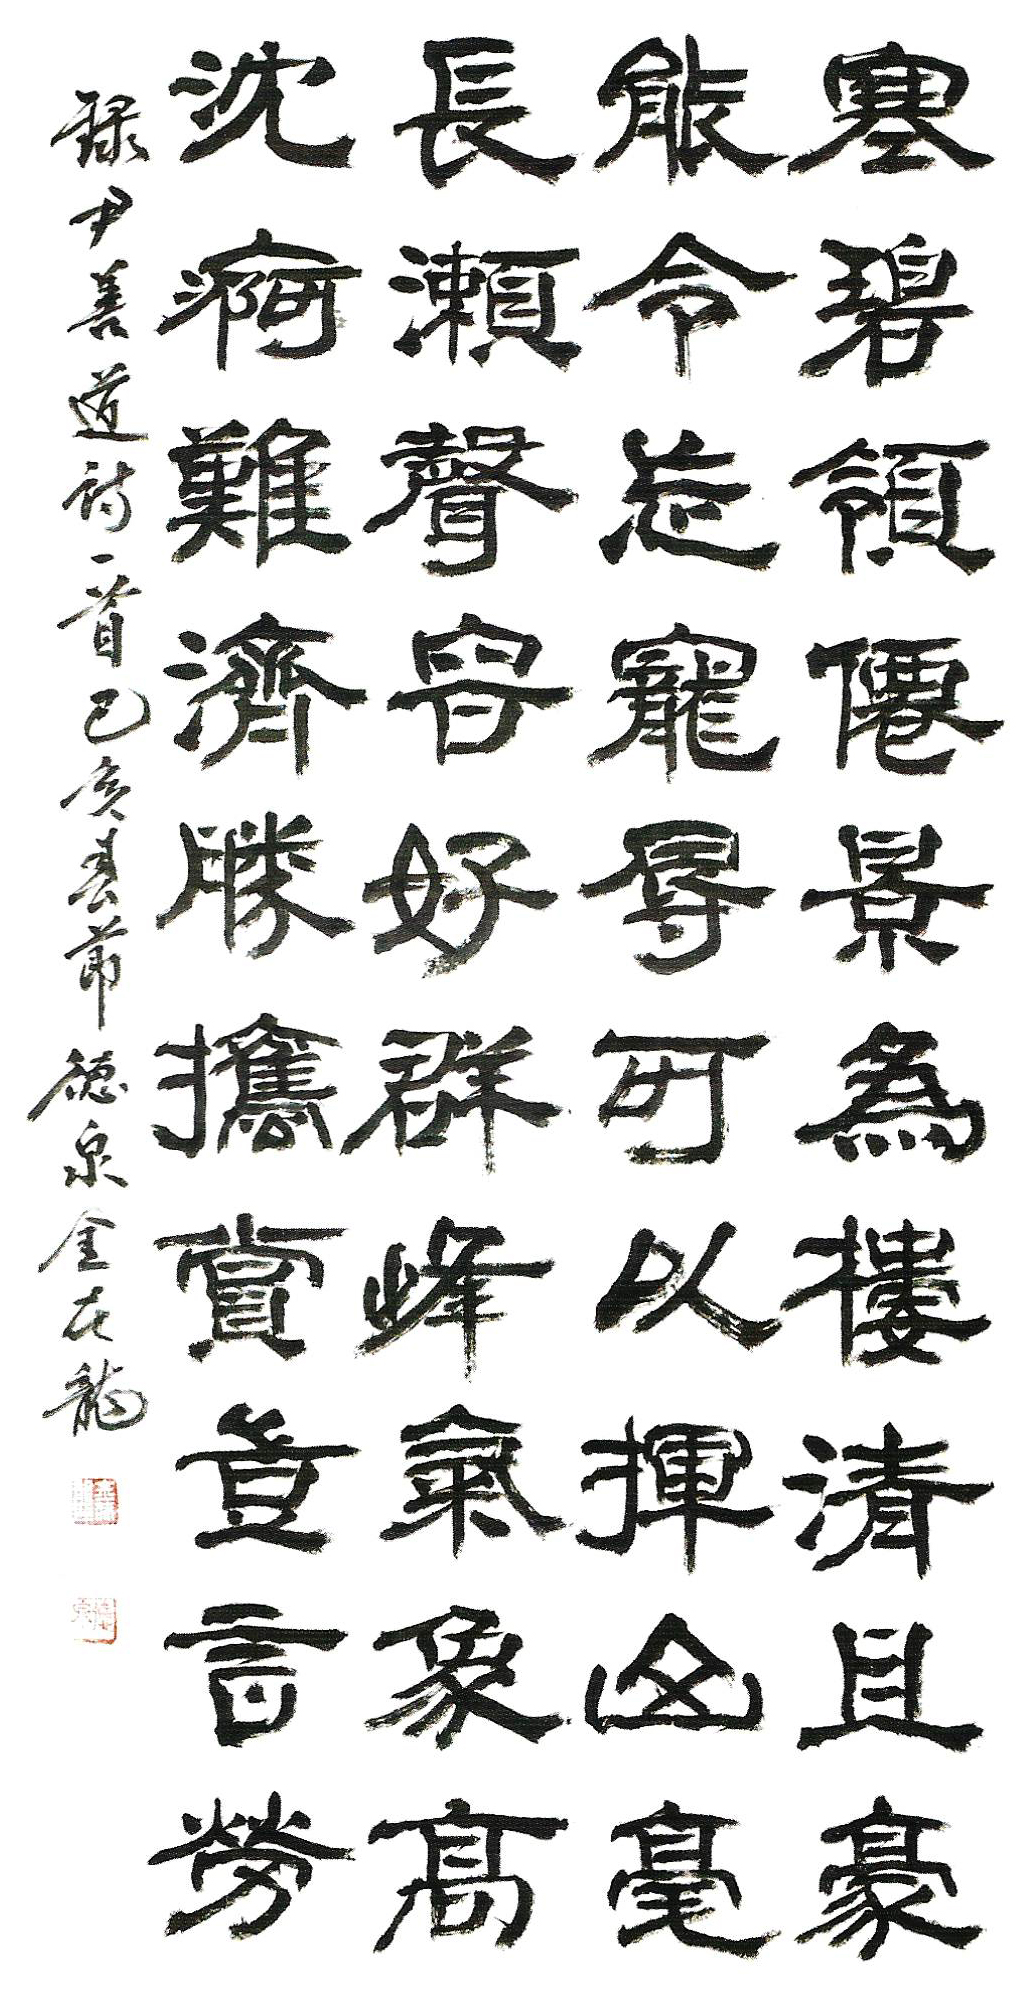 寒碧領僊景為樓清且豪
能令忘寵辱可以揮毫
長瀨聲容好群峰氣象高
沈痾難濟勝攜賞豈言勞
錄尹善道詩一首己亥春節德泉金在龍